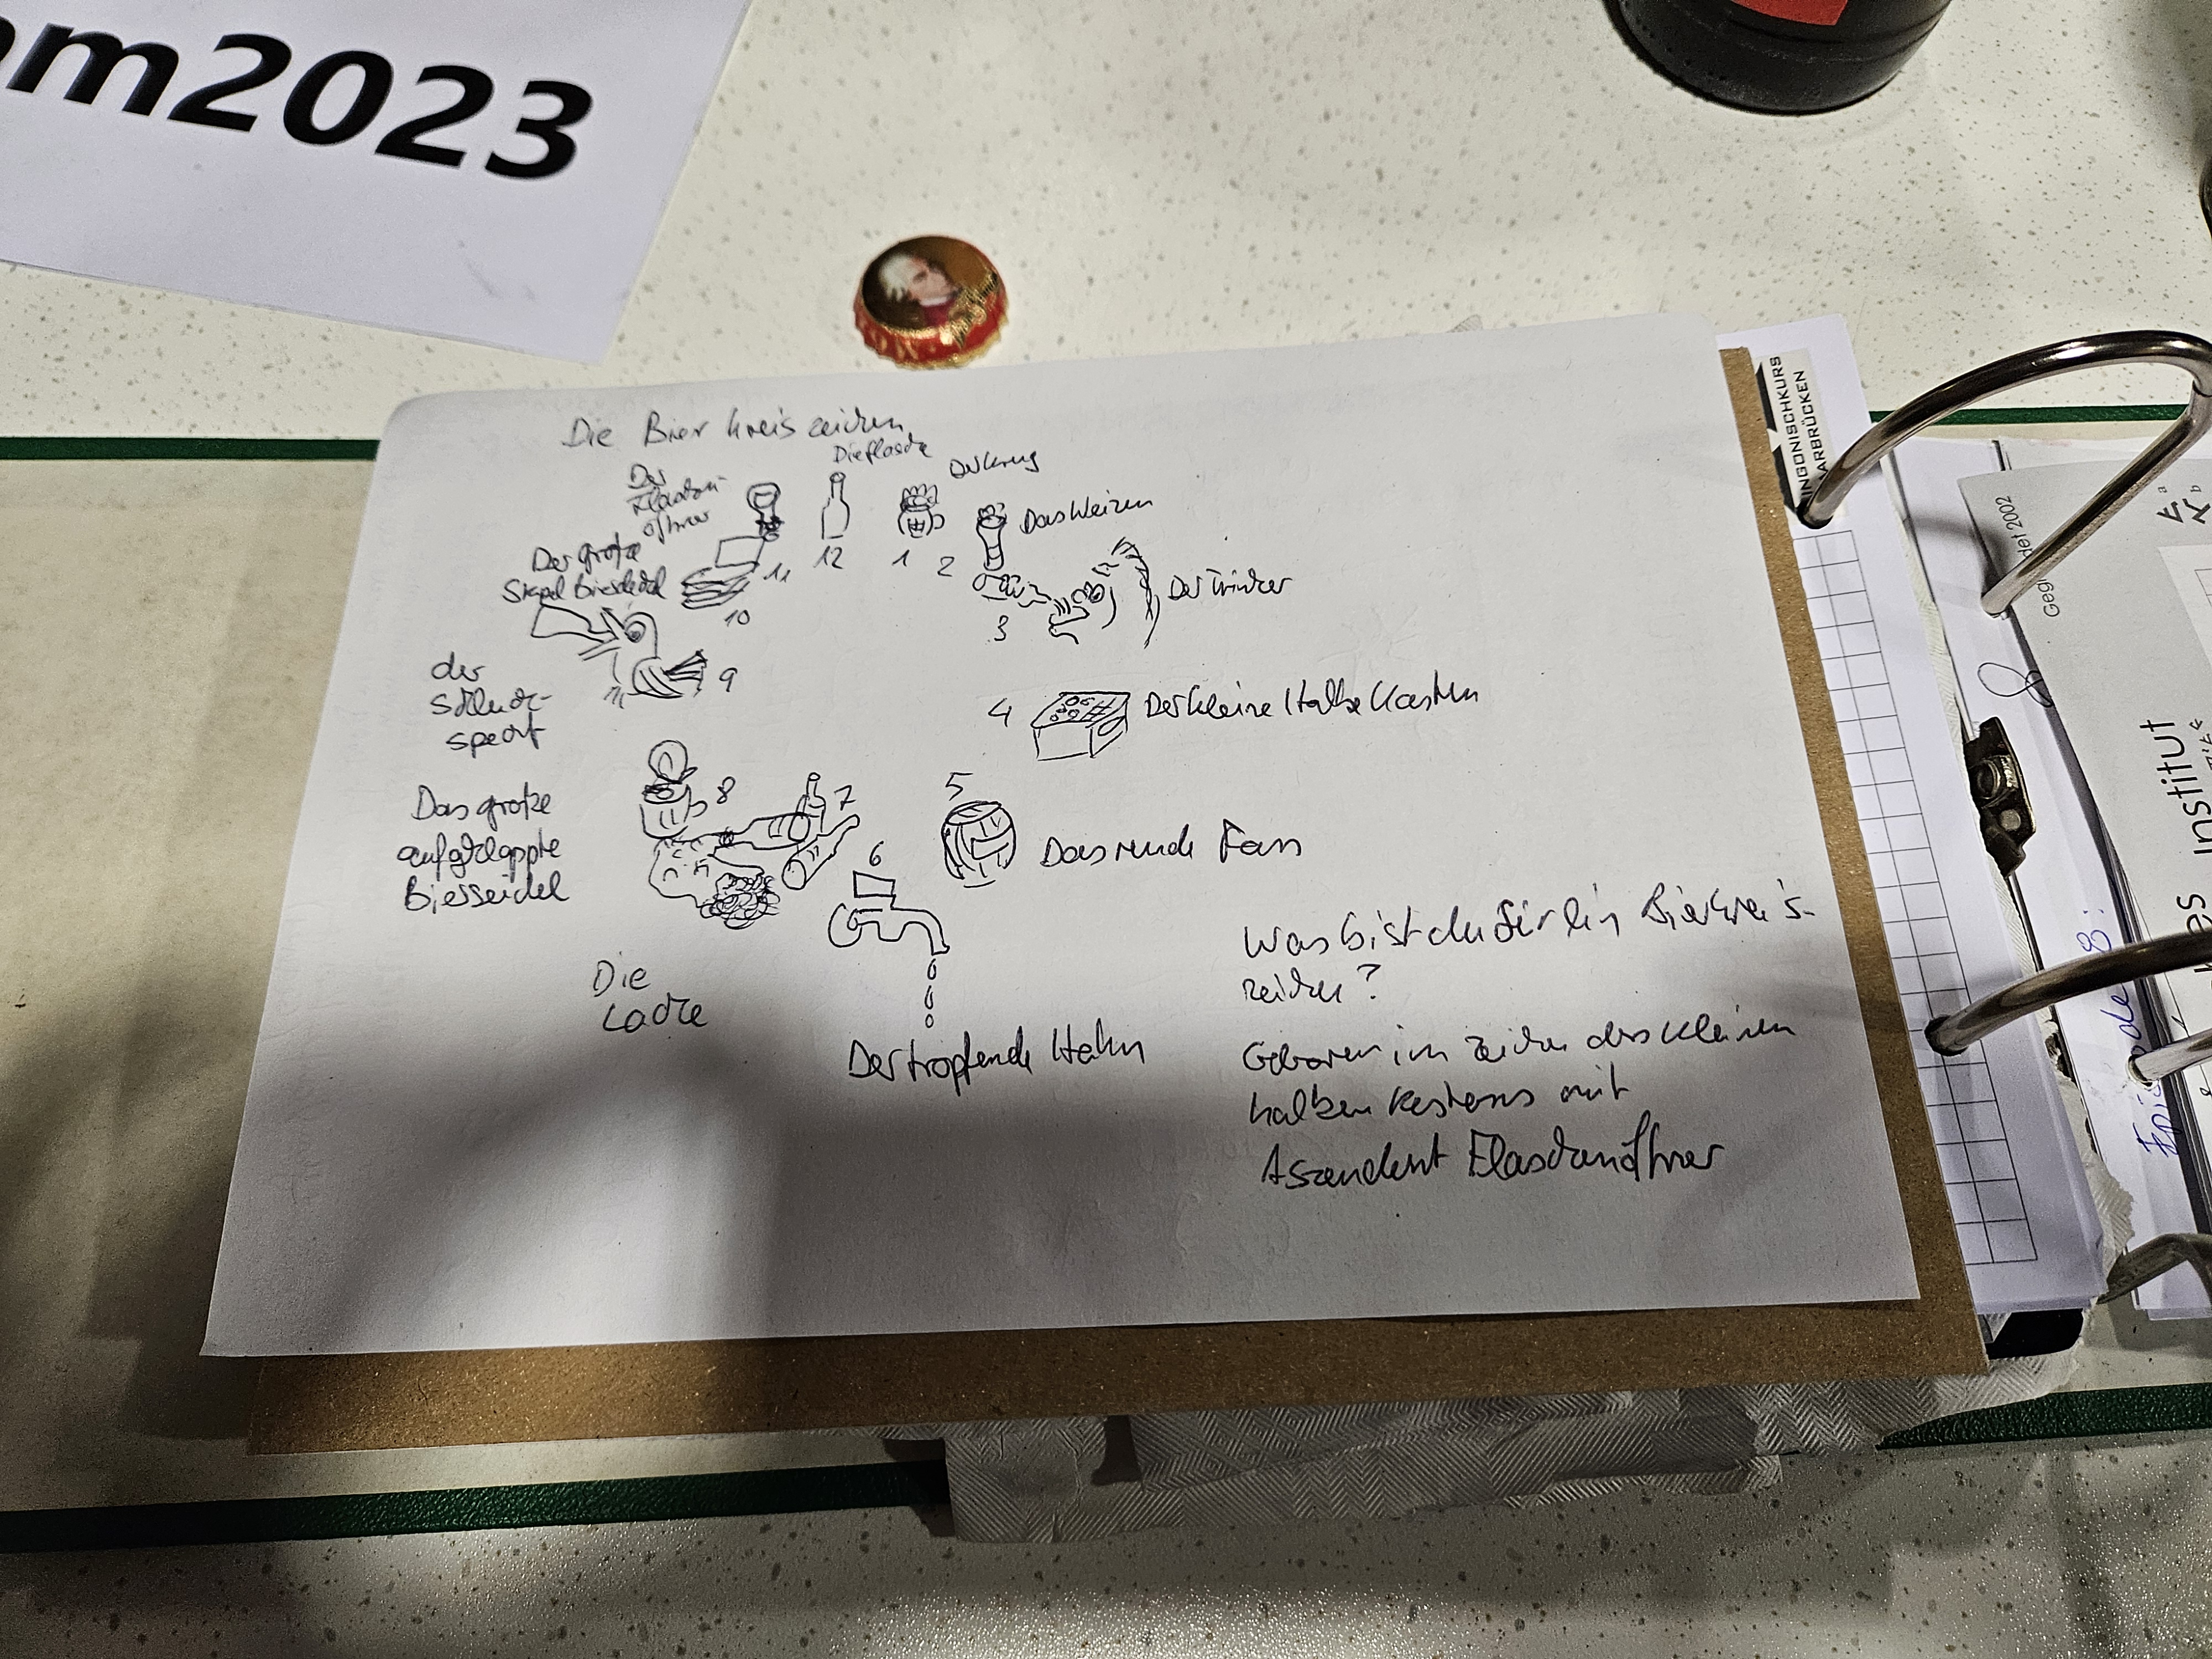 om2023
Die Bierkreiszeichen
Die Flasche
Der Krug
Der
Flaschen-
öffner
12
1
2
Das Weizen
11
Der große
Stapel Bierdeckel
10
3
Der Trinker
der
Schluck-
specht
9
4
Der kleine Halbe Kasten
Das große
aufgeklappte
Bierseidel
8
7
5
Das runde Fass
6
Die
Lache
Der tropfende Hahn
Was bist du für ein Bierkreis-
zeichen?
Geboren im Zeichen des kleinen
halben Kastens mit
Aszendent Flaschenöffner
INGONISCHKURS
AARBRÜCKEN
det 2002
Institut